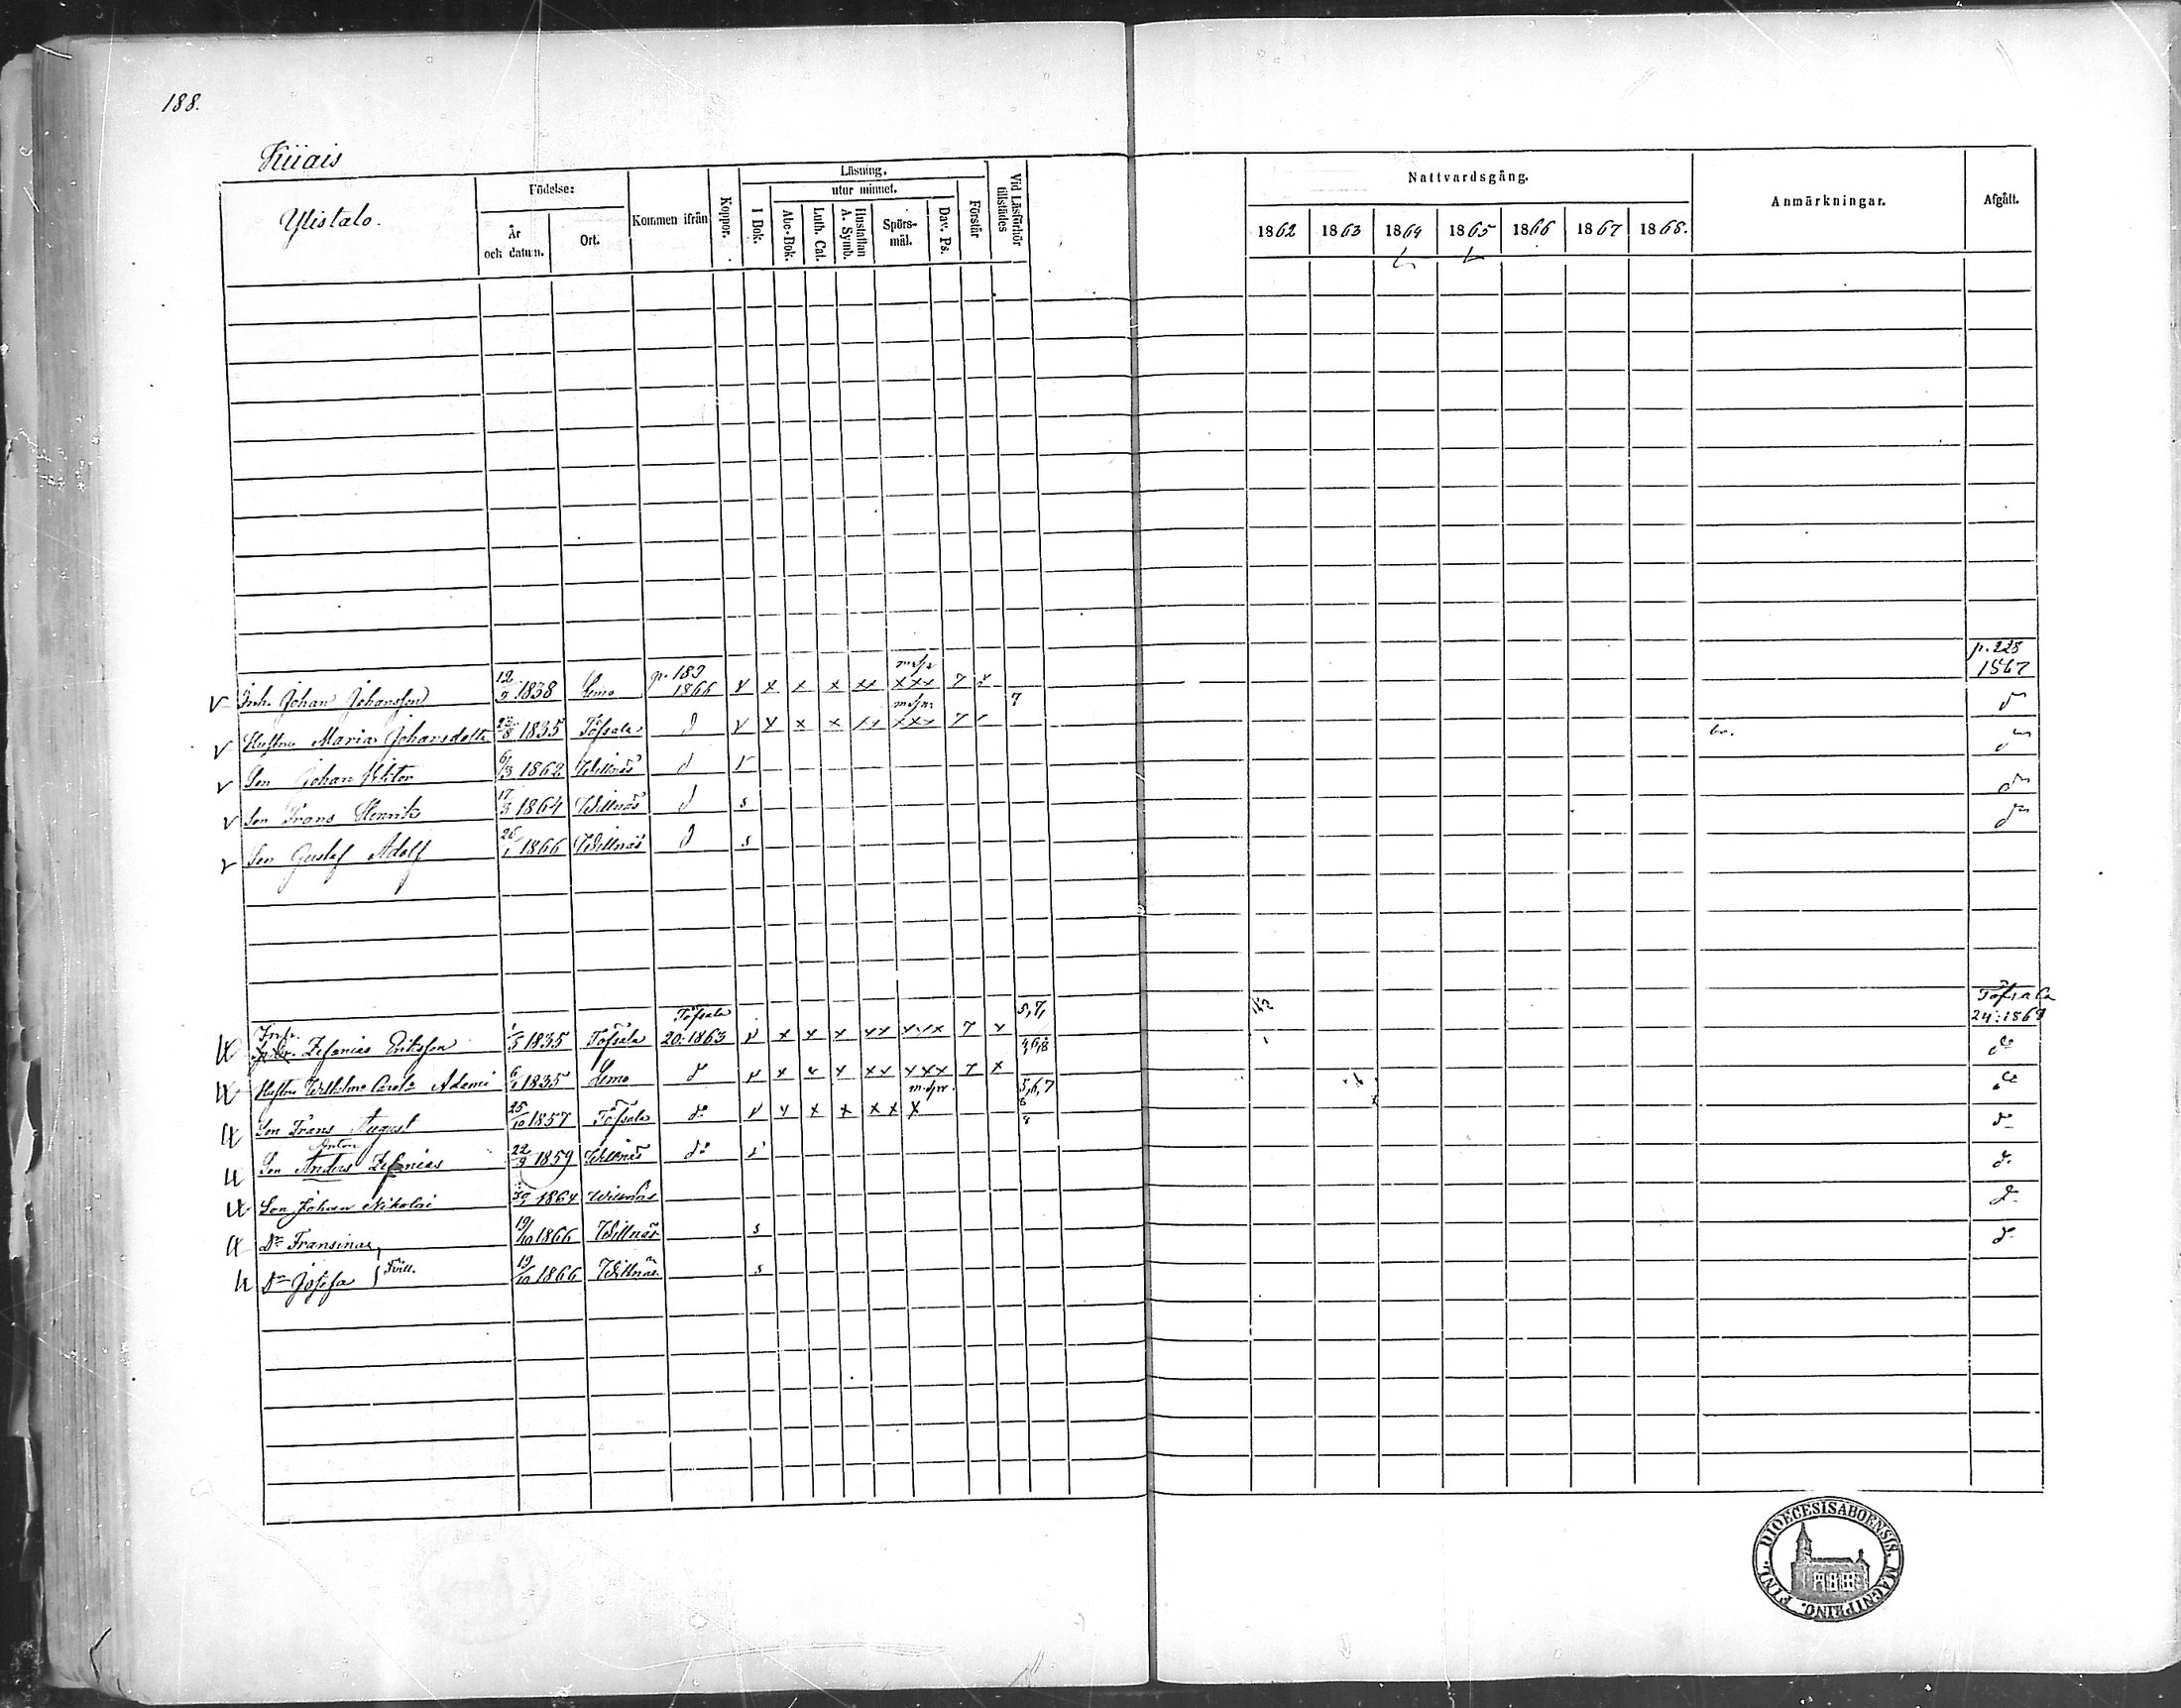 188.
Kiiais
Ylistalo.
Födelse:
År och datum.
Ort.
Kommen ifrån
Koppor.
Läsning.
I Bok.
utur minnet.
Abc-Bok.
Luth. Cat.
Hustaflan A. Symb.
Spörs-mål.
Dav. Ps.
Förstår
Vid Läsförhör tillstädes
Nattvardsgång.
1862 1863 1864 1865 1866 1867 1868.
Anmärkningar.
Afgått.
p. 228
1867
Inh. Johan Johansson 12/ 1838 Lemo p. 183 1866 x x x xx xxx 7
Hustru Maria Johansdotter /8 1835 Töfsala d x x xxx 7 7
Son Johan Viktor 6/3 1862 Willnäs d
Son Frans Henrik 17/3 1864 Willnäs d s
Son Gustaf Adolf 26/1 1866 Willnäs d s
Töfsala
24: 1868
Inh. Zefanias Eriksson 1/5 1835 Töfsala Töfsala 20: 1863 v x x x xx xxx 7 x 5,7,
Hustru Wilhelmina Carol:a Adami 6/ 1835 Lemo d:o v x x x xx xxx 7 x 4,6,8
Son Frans August 25/10 1857 Töfsala d:o v x x x xx x 5,6,7 8
Anton
Son Anders Zefanias 22/3 1859 Willnäs d:o
Son Johan Nikolai 1864 Willnäs
D:r Fransina 19/10 1866 Willnäs s
D:r Josefa } Tvill. 19/10 1866 Willnäs s
FINL. DIOECESIS ABOENSIS. MAGNI PRINC.